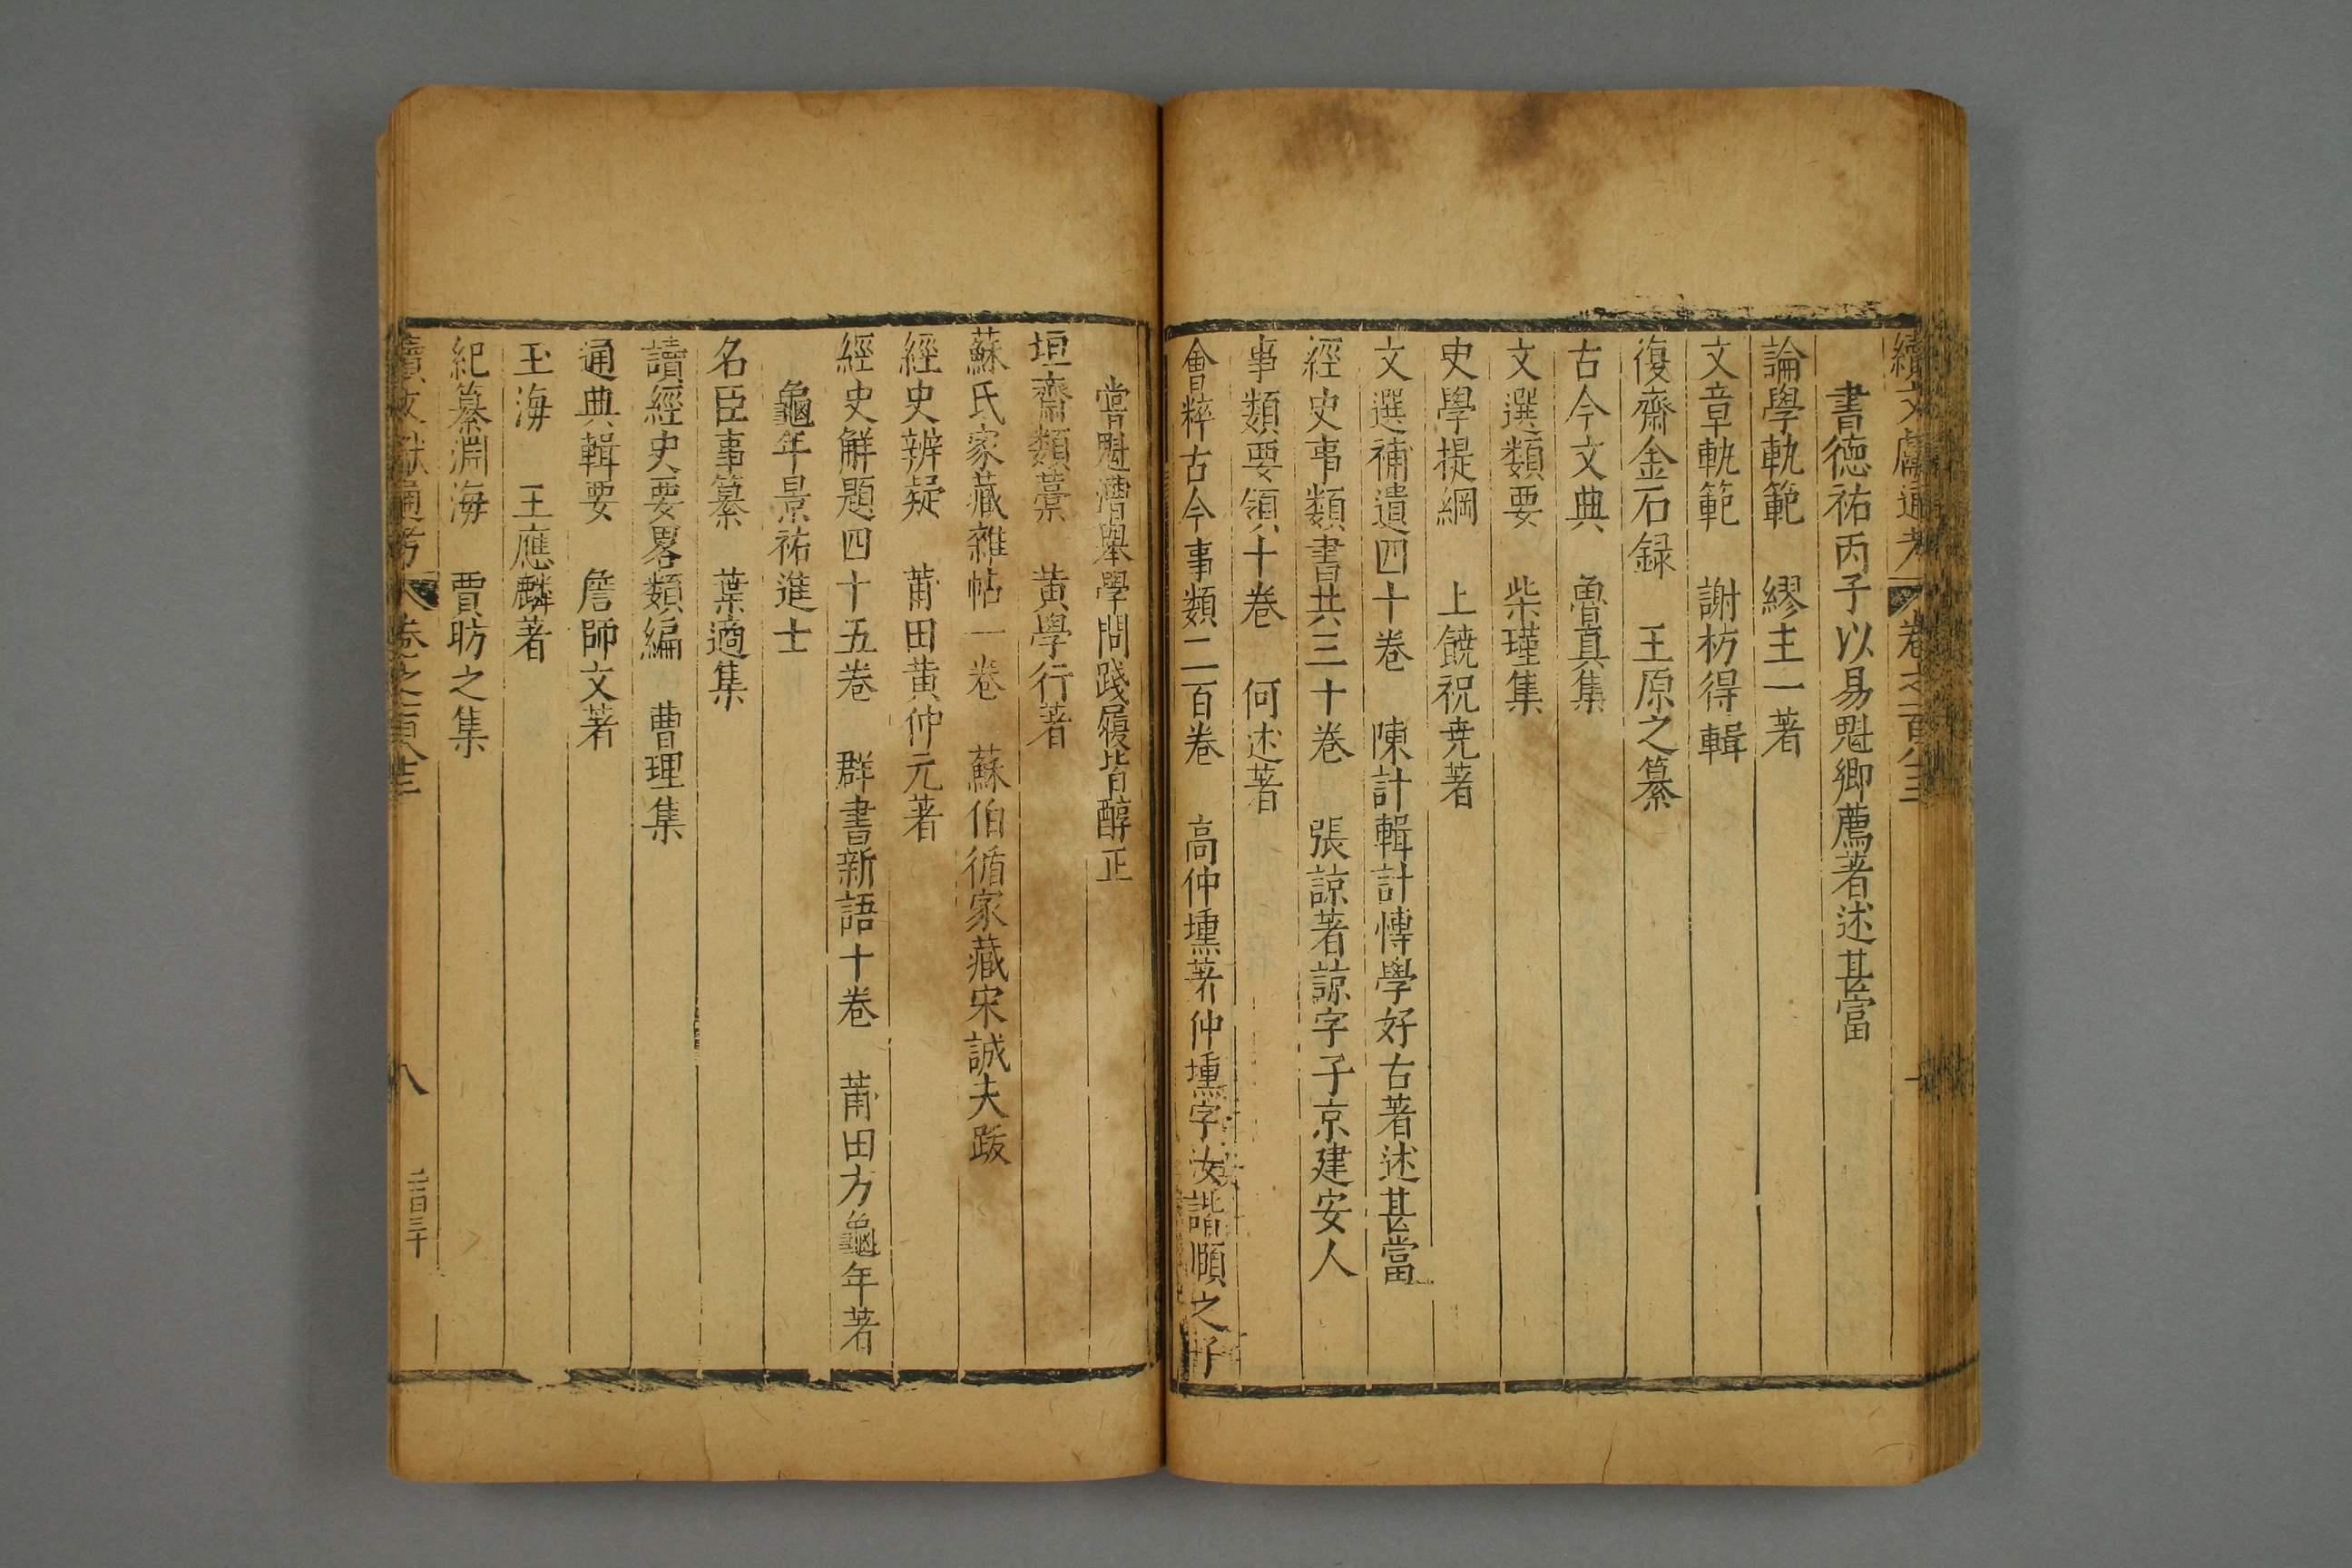 續文獻通考 卷之一百八十三
書德祐丙子以易魁鄉薦著述甚富
論學軌範 繆主一著
文章軌範 謝枋得輯
復齋金石録 王厚之纂
古今文典 魯真集
文選類要 柴瑾集
史學提綱 上饒祝堯著
文選補遺四十卷 陳計輯計慱學好古著述甚當
經史事類書共三十卷 張諒著諒字子京建安人
事類要領十卷 何述著
會粹古今事類二百卷 高仲壎著仲壎字汝諧順之子
嘗魁漕舉學問踐履皆醇正
垣齋類藁 黃學行著
蘇氏家藏雜帖一卷 蘇伯循家藏宋誠夫跋
經史辨疑 莆田黃仲元著
經史解題四十五卷 群書新語十卷 莆田方龜年著
龜年景祐進士
名臣事纂 葉適集
讀經史要畧類編 曹理集
通典輯要 詹師文著
玉海 王應麟著
紀纂淵海 賈昉之集
續文獻通考 卷之一百八十三 八 二百三十